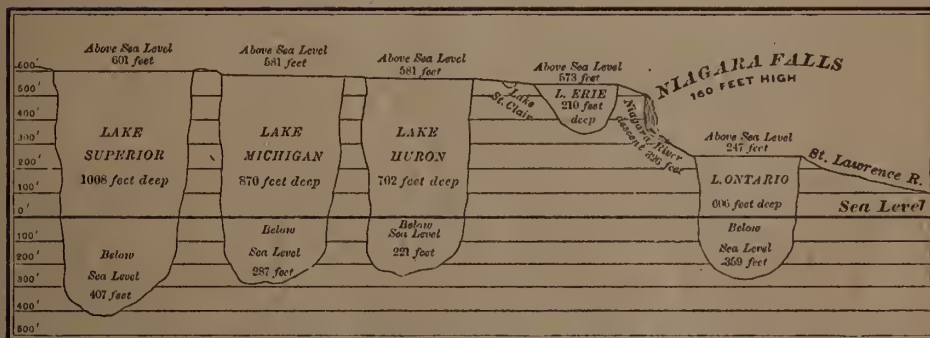 600'
500'
400'
300'
200'
100'
0'
100'
200'
300'
400'
500'
Above Sea Level
601 feet
LAKE
SUPERIOR
1008 feet deep
Below
Sea Level
407 feet
Above Sea Level
581 feet
LAKE
MICHIGAN
870 feet deep
Below
Sea Level
287 feet
Above Sea Level
581 feet
LAKE
HURON
702 feet deep
Below
Sea Level
221 feet
Lake
St. Clair
Above Sea Level
573 feet
L. ERIE
210 feet
deep
Niagara River
descent 326 feet
NIAGARA FALLS
160 FEET HIGH
Above Sea Level
247 feet
L. ONTARIO
606 feet deep
Below
Sea Level
359 feet
St. Lawrence R.
Sea Level